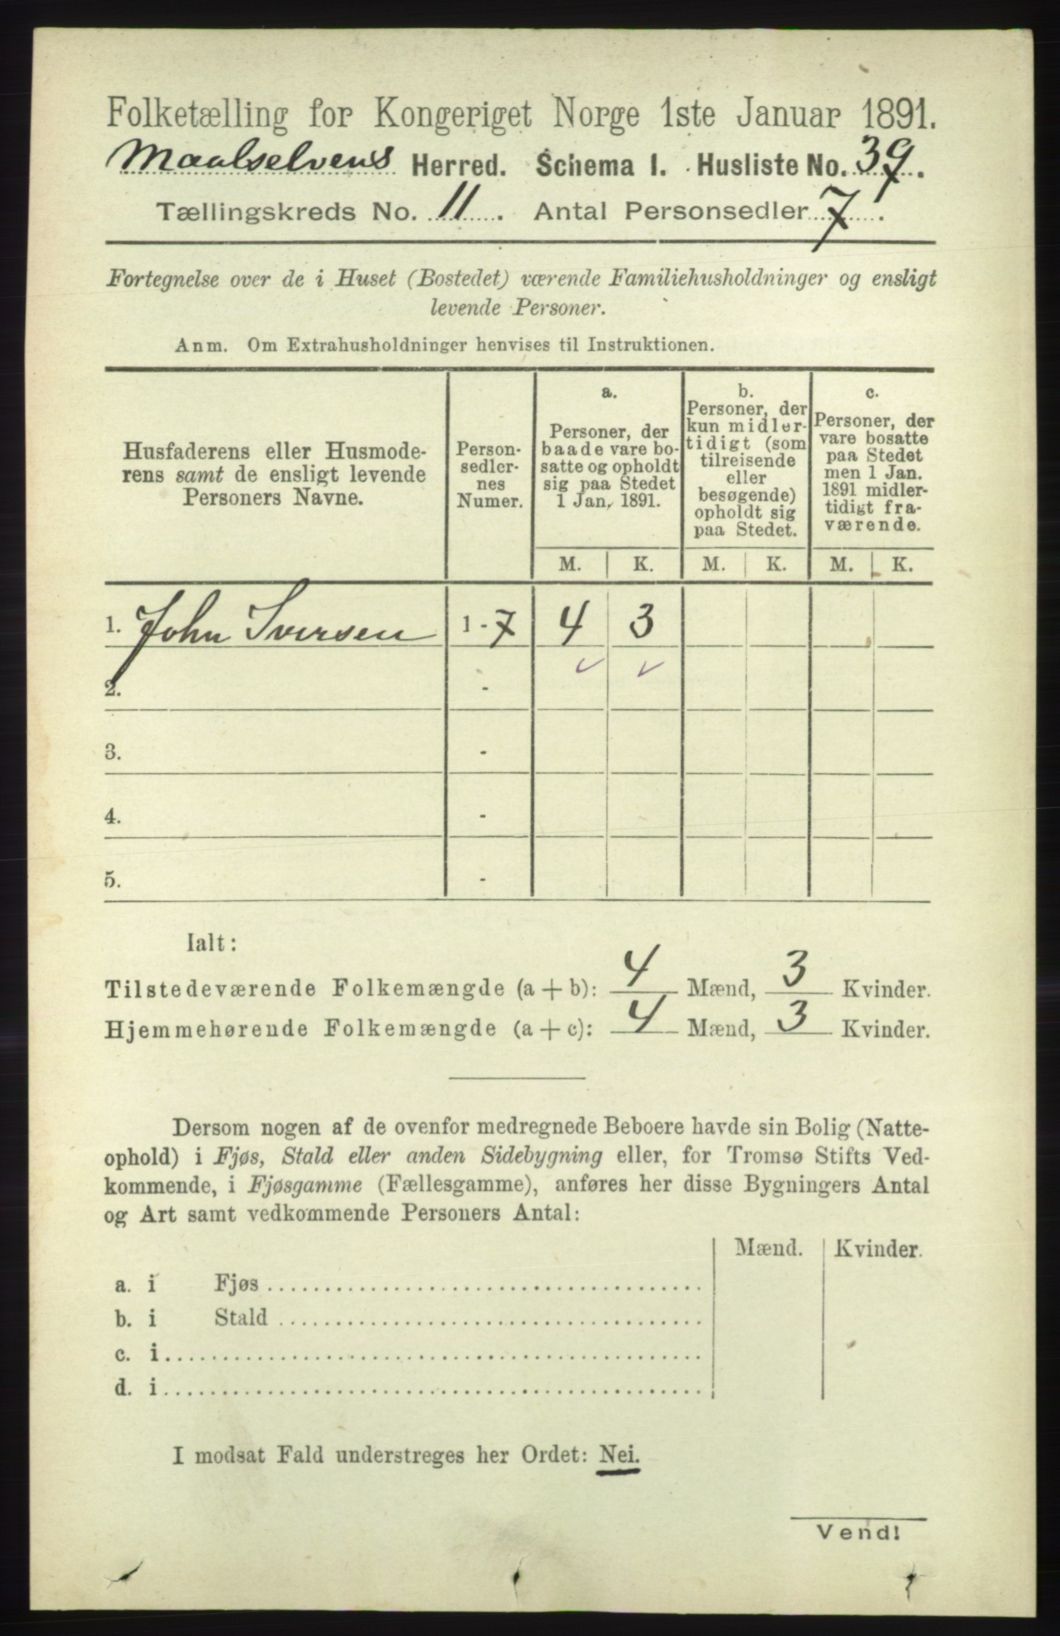 Folketælling for Kongeriget Norge 1ste Januar 1891.
Maalselvens Herred. Schema I. Husliste No. 39.
Tællingskreds No. 11. Antal Personsedler 7.
Fortegnelse over de i Huset (Bostedet) værende Familiehusholdninger og ensligt
levende Personer.
Anm. Om Extrahusholdninger henvises til Instruktionen.
Husfaderens eller Husmode-
rens samt de ensligt levende
Personers Navne.
Person-
sedler-
nes
Numer.
a.
Personer, der
baade vare bo-
satte og opholdt
sig paa Stedet
1 Jan. 1891.
b.
Personer, der
kun midler-
tidigt (som
tilreisende
eller
besøgende)
opholdt sig
paa Stedet.
c.
Personer, der
vare bosatte
paa Stedet
men 1 Jan.
1891 midler-
tidigt fra-
værende.
M. K. M. K. M. K.
1. John Iversen 1 - 7 4 3
2. -
3. -
4. -
5. -
Ialt:
Tilstedeværende Folkemængde (a + b): 4 Mænd, 3 Kvinder.
Hjemmehørende Folkemængde (a + c): 4 Mænd, 3 Kvinder.
Dersom nogen af de ovenfor medregnede Beboere havde sin Bolig (Natte-
ophold) i Fjøs, Stald eller anden Sidebygning eller, for Tromsø Stifts Ved-
kommende, i Fjøsgamme (Fællesgamme), anføres her disse Bygningers Antal
og Art samt vedkommende Personers Antal:
Mænd. Kvinder.
a. i Fjøs
b. i Stald
c. i
d. i
I modsat Fald understreges her Ordet: Nei.
Vend!